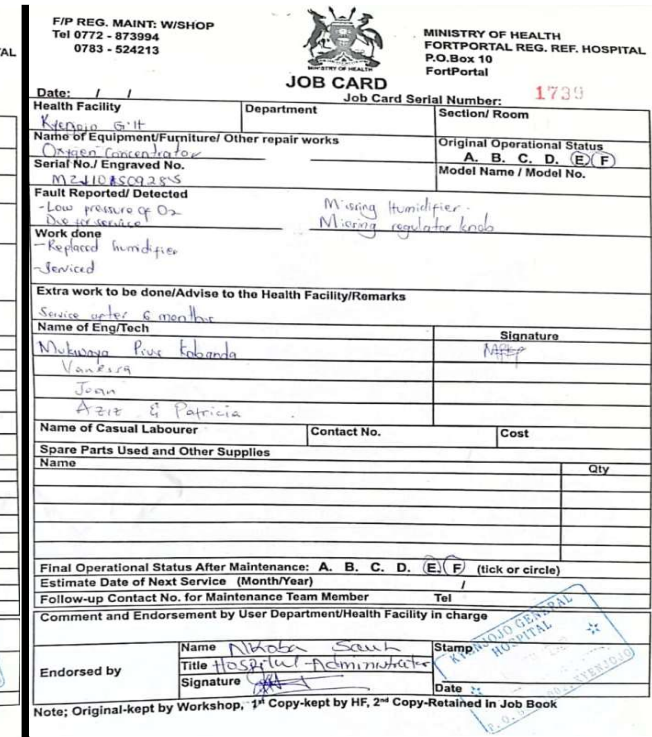 AL
F/P REG. MAINT: W/SHOP
Tel 0772 - 873994
0783 - 524213
MINISTRY OF HEALTH
MINISTRY OF HEALTH
FORTPORTAL REG. REF. HOSPITAL
P.O.Box 10
FortPortal
JOB CARD
Date: / /
Job Card Serial Number: 1739
Health Facility
Department
Section/ Room
Kyenjojo G.H
Name of Equipment/Furniture/ Other repair works
Original Operational Status
Oxygen Concentrator
A. B. C. D. E F
Serial No./ Engraved No.
Model Name / Model No.
Fault Reported/ Detected
-Low pressure of O2
Missing Humidifier.
Due for service
Missing regulator knob
Work done
-Replaced humidifier
-Serviced
Extra work to be done/Advise to the Health Facility/Remarks
Service after 6 months
Name of Eng/Tech
Signature
Mukwaya Pius Kabanda
Vanessa
Joan
Aziz & Patricia
Name of Casual Labourer
Contact No.
Cost
Spare Parts Used and Other Supplies
Name
Qty
Final Operational Status After Maintenance: A. B. C. D. E. F (tick or circle)
Estimate Date of Next Service (Month/Year) /
Follow-up Contact No. for Maintenance Team Member Tel
Comment and Endorsement by User Department/Health Facility in charge
Endorsed by
Name
Title Hospital Administrator
Signature
Stamp
KYENJOJO GENERAL
HOSPITAL
Date
Note; Original-kept by Workshop, 1st Copy-kept by HF, 2nd Copy-Retained in Job Book